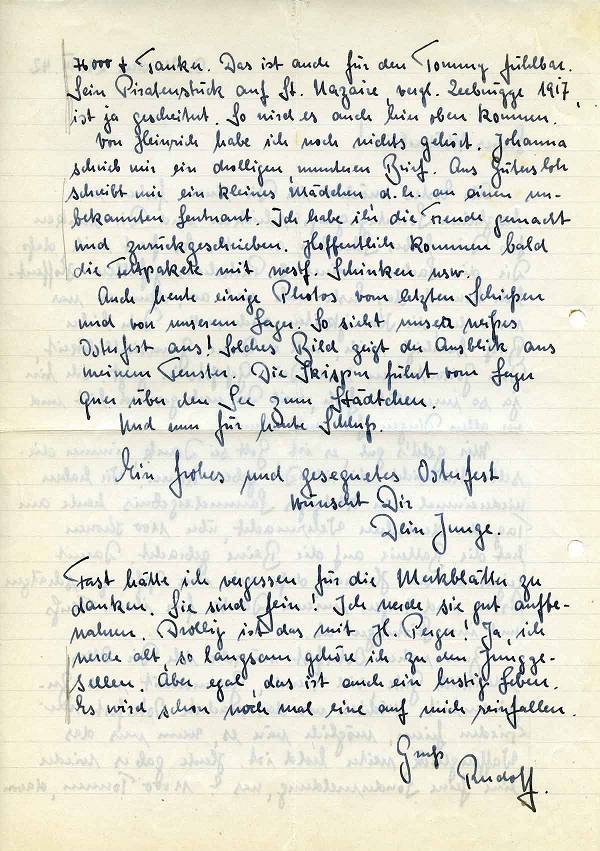 76000 t Tanker. Das ist auch für den Tommy fühlbar.
Sein Piratenstück auf St. Nazaire, vergl. Zeebrügge 1917,
ist ja gescheitert. So wird es auch hier oben kommen.
Von Heinrich habe ich noch nichts gehört. Johanna
schrieb mir ein drolligen, munteren Brief. Aus Gütersloh
schreibt mir ein kleines Mädchen, d. h. an einen un-
bekannten Leutnant. Ich habe ihr die Freude gemacht
und zurückgeschrieben. Hoffentlich kommen bald
die Fettpakete mit westf. Schinken usw.
Auch heute einige Photos vom letzten Schießen
und von unserem Lager. So sieht unser weißes
Osterfest aus! Solches Bild zeigt der Ausblick aus
meinem Fenster. Die Skispur führt vom Lager
quer über den See zum Städtchen.
Und nun für heute Schluß.
Ein frohes und gesegnetes Osterfest
wünscht Dir
Dein Junge.
Fast hätte ich vergessen für die Merkblätter zu
danken. Sie sind fein! Ich werde sie gut aufbe-
wahren. Drollig ist das mit H. Ja, ich
werde alt, so langsam gehöre ich zu den Jungge-
sellen. Aber egal, das ist auch ein lustig Leben.
Es wird schon noch mal eine auf mich reinfallen.
Gruß
Rudolf.